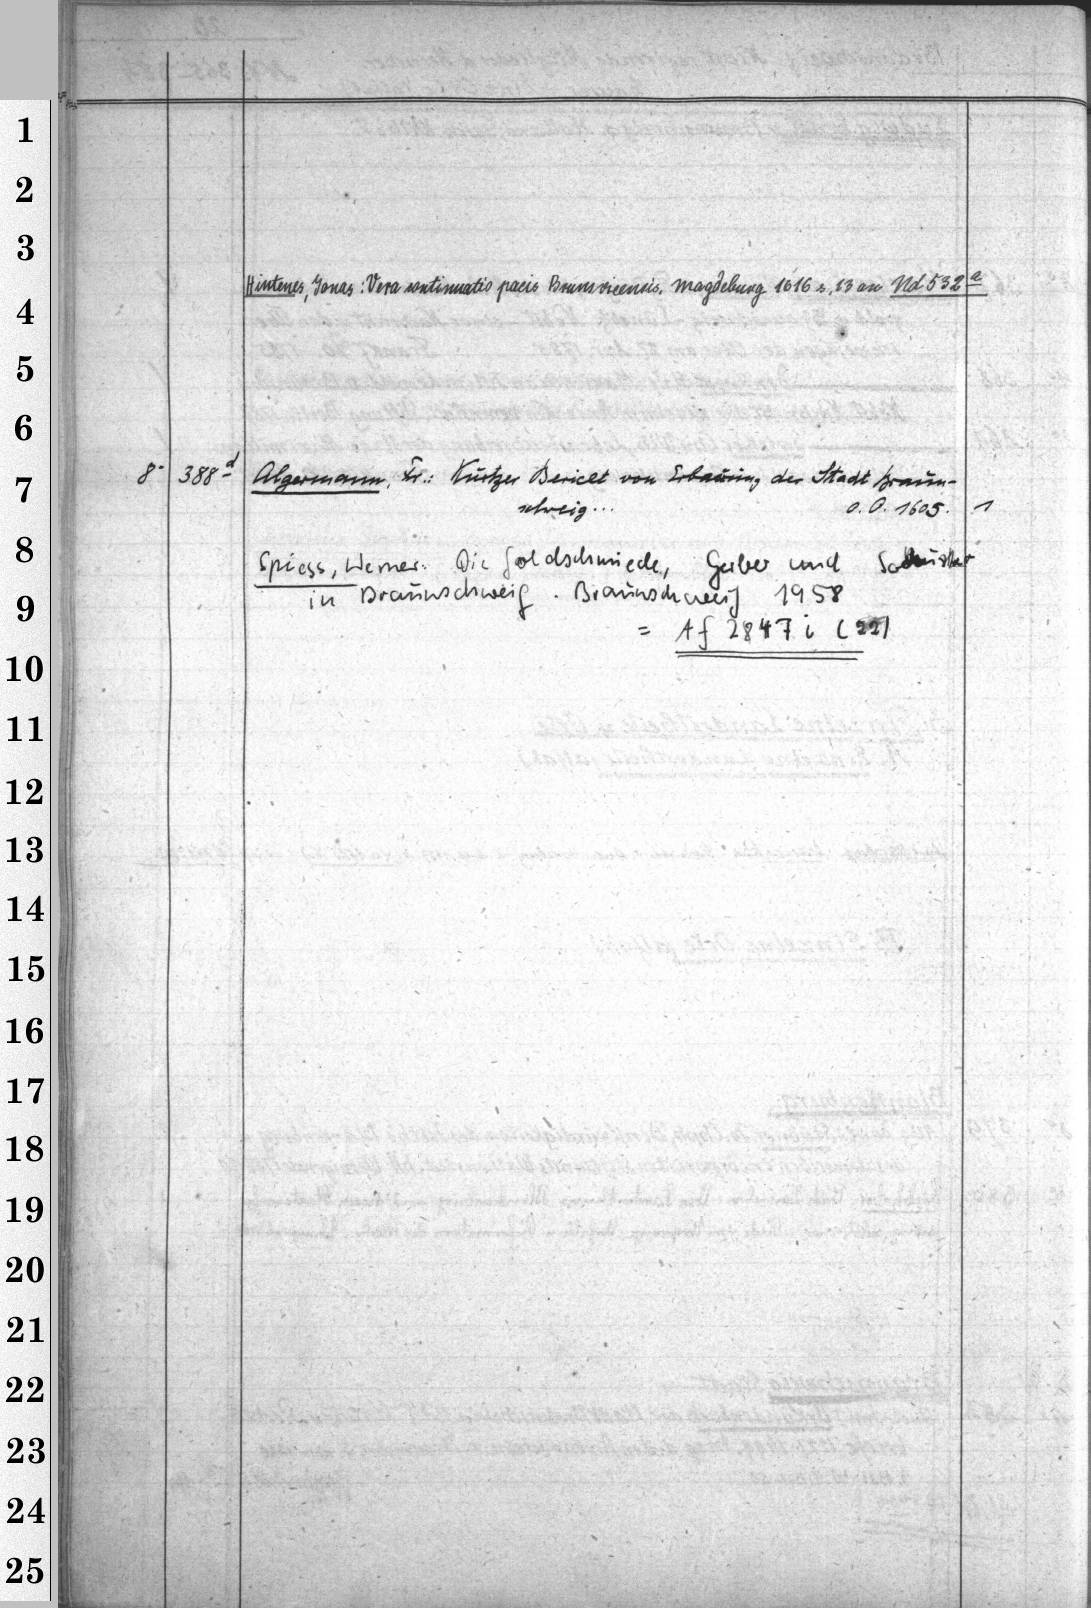 1
2
3
Hintenes, Jonas: Vera continuatio pacis Brunsvicensis. Magdeburg 1616 s. 13 an Nd 532 a
4
5
6
8° 388 d Algermann, Fr.: Kurtzer Bericht von Erbauung der Stadt Braun-
7
schweig... o. O. 1605. 1
8
Spiess, Werner. Die Goldschmiede, Gerber und Schuster
9
in Braunschweig. Braunschweig 1958
= Af 2847 i (22)
10
11
12
13
14
15
16
17
18
19
20
21
22
23
24
25